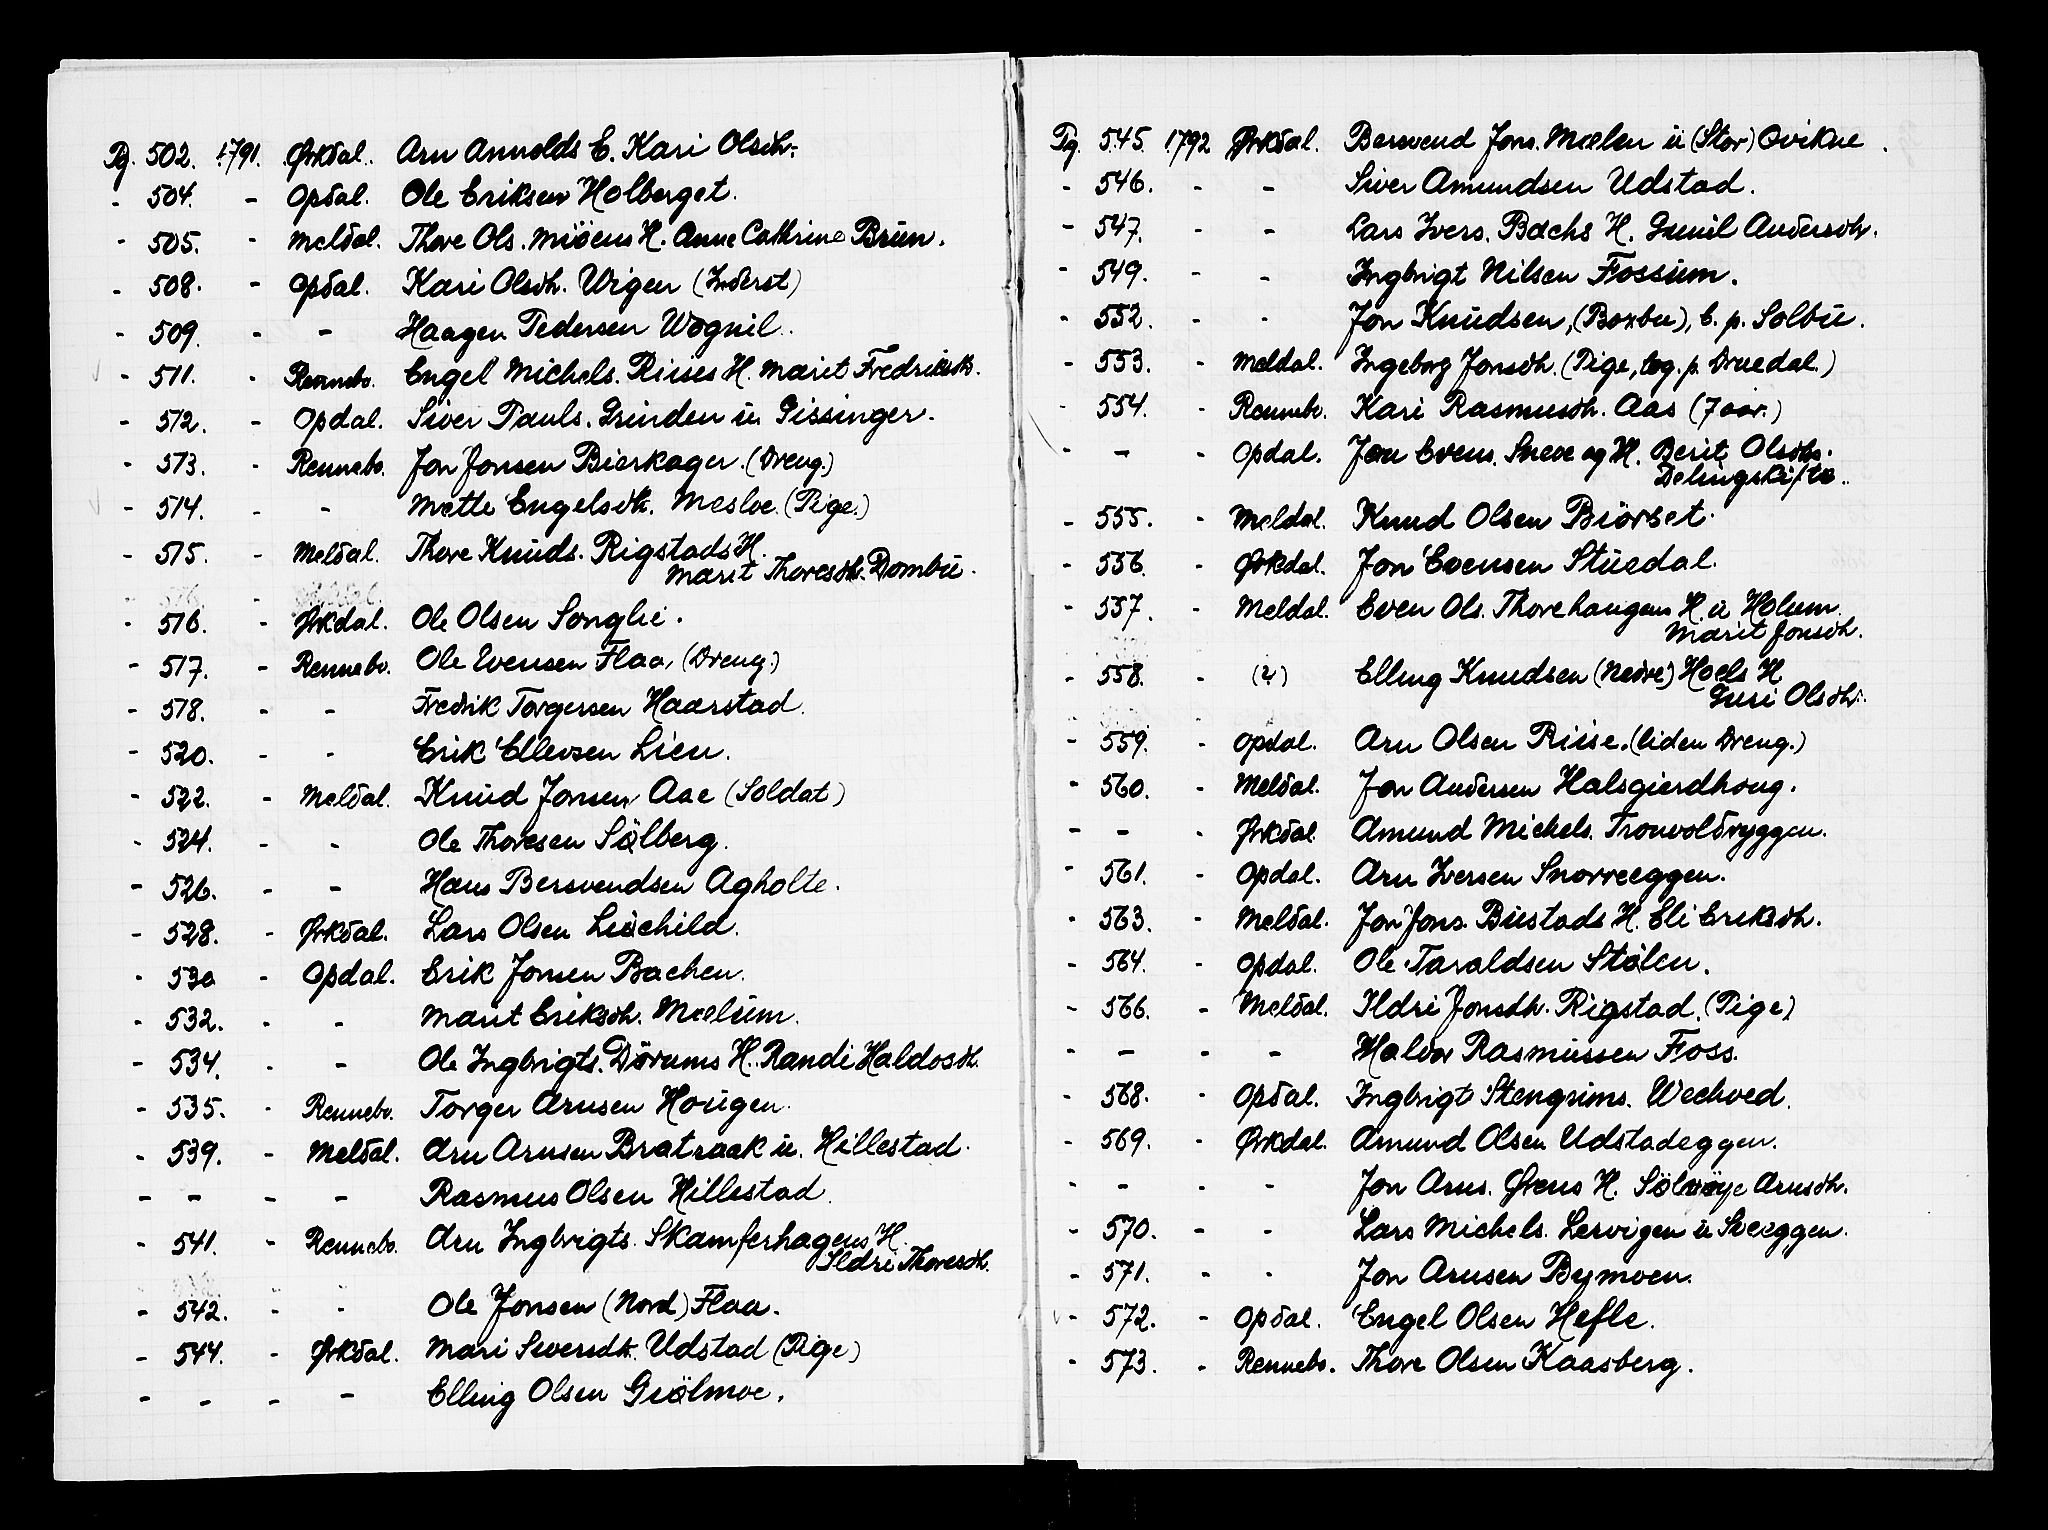 Pg. 502. 1791. Ørkdal. Arn Arnolds E. Kari Olsdh.
- 504. - Opdal. Ole Eriksen Holberget.
- 505. - Meldal. Thore Ols. Miöens H. Anne Cathrine Brün.
- 508. - Opdal. Kari Olsdh. Vigen (Inderst)
- 509. - - Haagen Pedersen Wognil.
- 511. - Rennebo. Engel Michels. Riises H. Marit Fredriksdh.
- 512. - Opdal. Siver Pauls. Grinden u. Gissinger.
- 513. - Rennebo. Jon Jonsen Bierkager. (Dreng.)
- 514. - - Mette Engelsdh. Mesloe. (Pige.)
- 515. - Meldal. Thore Knuds. Rigstads H.
Marit Thoresdh. Dombu.
- 516. - Ørkdal. Ole Olsen Songlie.
- 517. - Rennebo. Ole Evensen Flaa, (Dreng.)
- 518. - - Fredrik Torgersen Haarstad.
- 520. - - Erik Ellevsen Lien.
- 522. - Meldal. Knud Jonsen Aae (Soldat)
- 524. - - Ole Thoresen Sölberg.
- 526. - - Hans Bersvendsen Agholte.
- 528. - Ørkdal. Lars Olsen Liøchild.
- 530 - Opdal. Erik Jonsen Bachen.
- 532. - - Marit Eriksdh. Mælum.
- 534. - - Ole Ingbrigts. Dörums H. Randi Haldosdh.
- 535. - Rennebo. Torger Arnsen Hougen.
- 539. - Meldal. Arn Arnsen Bratraak u. Hillestad.
- - - - Rasmus Olsen Hillestad.
- 541. - Rennebo. Arn Ingbrigts. Skamferhagens H.
Ildri Thoresdh.
- 542. - - Ole Jonsen (Nord) Flaa.
- 544. - Ørkdal. Mari Siversdh. Udstad (Pige)
- - - - Elling Olsen Giölmoe.
Pg. 545. 1792 Ørkdal. Bersvend Jons. Mælen u (Stor) Qvikne.
- 546. - - Siver Amundsen Udstad.
- 547. - - Lars Ivers. Bachs H. Gunil Andersdh.
- 549. - - Ingbrigt Nilsen Fossum.
- 552. - - Jon Knudsen, (Boxbu), b. p. Solbu.
- 553. - Meldal. Ingeborg Jonsdh. (Pige, log. p. Druedal.)
- 554. - Rennebo. Kari Rasmusdh. Aas (7 aar.)
- - - Opdal. Jon Evens. Sneve og H. Berit Olsdhs.
Delingskifte.
- 555. - Meldal. Knud Olsen Biörset.
- 556. - Ørkdal. Jon Evensen Stuedal.
- 557. - Meldal. Even Ols. Thorehaugens H. u Holum
Marit Jonsdh.
- 558. - (?) Elling Knudsen (Nedre) Hoels H
Guri Olsdh.
- 559. - Opdal. Arn Olsen Riise. (liden Dreng.)
- 560. - Meldal. Jon Andersen Halsgierdhoug.
- - - Ørkdal. Amund Michels. Tronvoldryggen.
- 561. - Opdal. Arn Iversen Snorreeggen.
- 563. - Meldal. Jon Jons. Bustads H. Eli Eriksdh.
- 564. - Opdal. Ole Taraldsen Stölen.
- 566. - Meldal. Ildri Jonsdh. Rigstad. (Pige)
- - - - Halvor Rasmussen Foss.
- 568. - Opdal. Ingbrigt Stengrims. Wechved.
- 569. - Ørkdal. Amund Olsen Udstadeggen.
- - - - Jon Arns. Øiens H. Sölvöye Arnsdh.
- 570. - - Lars Michels. Lervigen u Sveeggen.
- 571. - - Jon Arnsen Bymoen.
- 572. - Opdal. Engel Olsen Hefle.
- 573. - Rennebo. Thore Olsen Kaasberg.